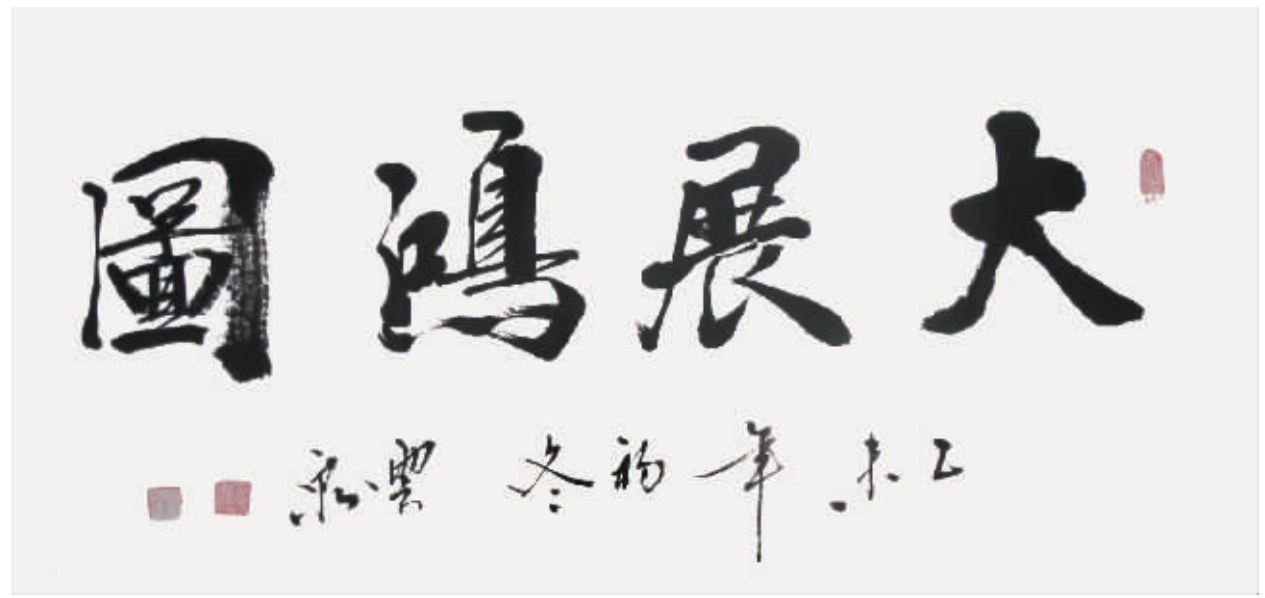 大展鴻圖
乙未年初冬